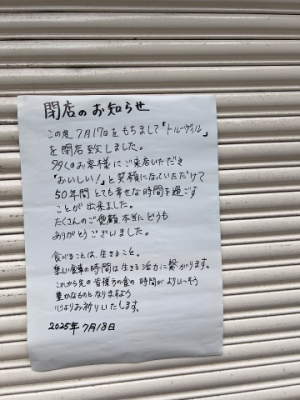 閉店のお知らせ
この度7月17日をもちまして「トルーヴィル」
を閉店致しました。
多くのお客様にご来店いただき
"おいしい!"と笑顔になっていただけて
50年間とても幸せな時間を過ごす
ことが出来ました。
たくさんのご愛顧本当にどうも
ありがとうございました。
食べることは、生きること。
楽しい食事の時間は生きる活力に繋がります。
これから先の皆様方の食の時間がよりいっそう
豊かなものとなりますよう
心よりお祈りいたします。
2025年7月18日